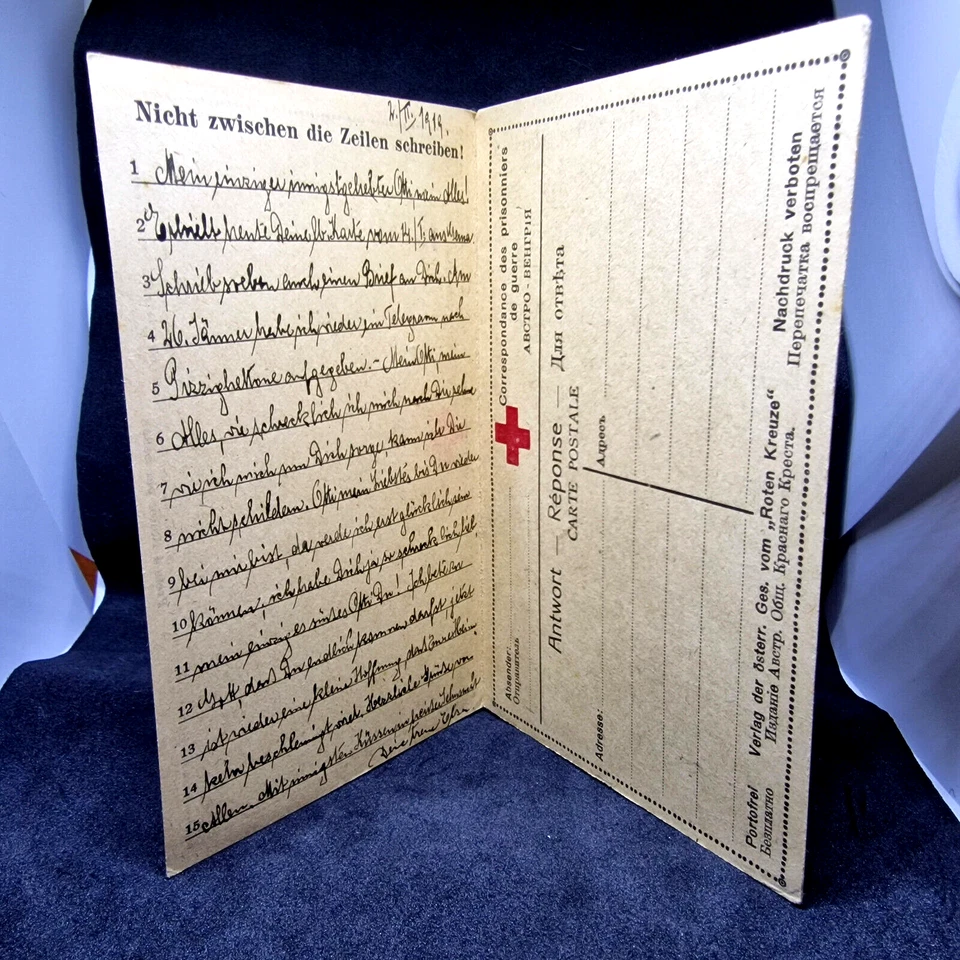 Nicht zwischen die Zeilen schreiben!
2./II. 1919.
1 Mein einziger innigstgeliebter Otti mein Alles!
2 Erhielt heute Deine lb. Karte vom 14./I. aus
3 Schrieb soeben auch einen Brief an Dich. Am
4 26. Jänner habe ich wieder ein Telegramm nach
5 Pizzighettone aufgegeben. – Mein Otti, mein
6 Alles, wie schrecklich ich mich nach Dir sehne
7 wie ich mich um Dich sorge, kann ich Dir
8 nicht schildern. Otti mein Liebstes bis Du wieder
9 bei mir bist, da werde ich erst glücklich sein
10 können, ich habe Dich ja so schrecklich lieb,
11 mein einziges Otti Du! Ich bete zu
12 Gott, dass Du endlich kommen darfst, jetzt
13 ist wieder eine kleine Hoffnung dass Eure Heim
14 kehr beschleunigt wird. Herzliche Grüsse von
15 Allen. Mit innigsten Küssen
Deine treue
Correspondance des prisonniers
de guerre
АВСТРО-ВЕНГРІЯ
Absender:
Отправитель
Antwort — Réponse — Для отвѣта
CARTE POSTALE
Адресъ
Adresse:
Portofrei Verlag der österr. Ges. vom „Roten Kreuze“ Nachdruck verboten
Безплатно Изданіе Австр. Общ. Краснаго Креста. Перепечатка воспрещается